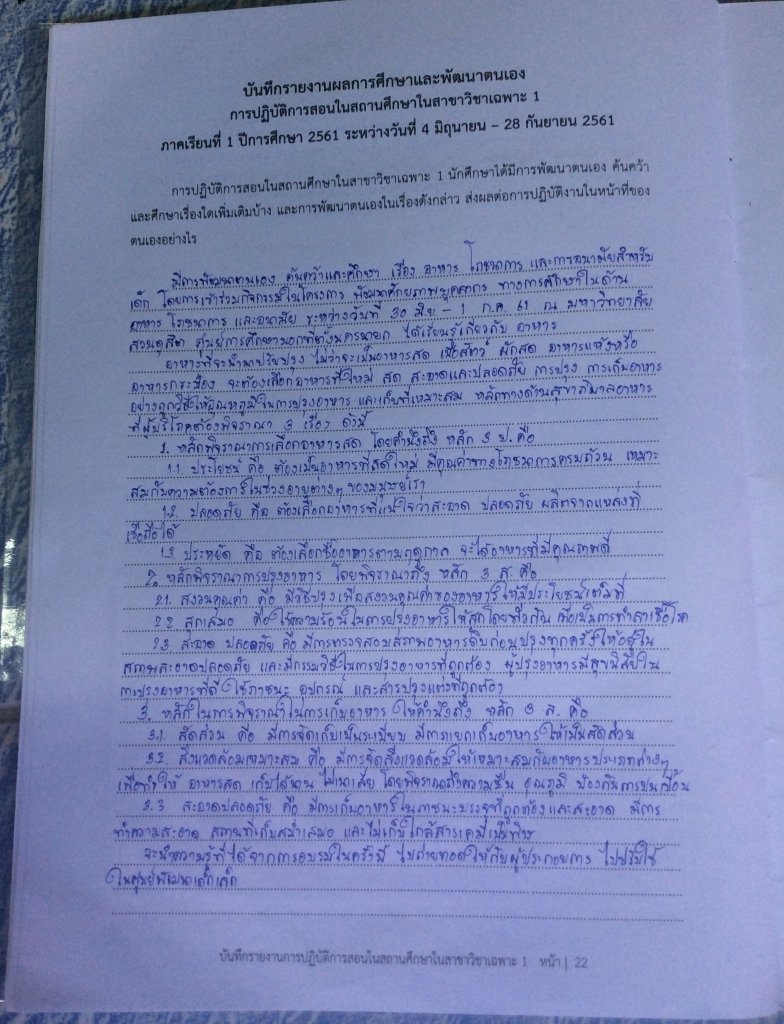 บันทึกรายงานผลการศึกษาและพัฒนาตนเอง
การปฏิบัติการสอนในสถานศึกษาในสาขาวิชาเฉพาะ 1
ภาคเรียนที่ 1 ปีการศึกษา 2561 ระหว่างวันที่ 4 มิถุนายน – 28 กันยายน 2561
การปฏิบัติการสอนในสถานศึกษาในสาขาวิชาเฉพาะ 1 นักศึกษาได้มีการพัฒนาตนเอง ค้นคว้า
และศึกษาเรื่องใดเพิ่มเติมบ้าง และการพัฒนาตนเองในเรื่องดังกล่าว ส่งผลต่อการปฏิบัติงานในหน้าที่ของ
ตนเองอย่างไร
มีการพัฒนาตนเอง ค้นคว้าและศึกษา เรื่อง อาหาร โภชนาการ และการอนามัยสำหรับ
เด็ก โดยการเข้าร่วมกิจกรรมในโครงการ พัฒนาศักยภาพบุคลากร ทางการศึกษาในด้าน
อาหาร โภชนาการ และอนามัย ระหว่างวันที่ 30 มิ.ย - 1 ก.ค. 61 ณ มหาวิทยาลัย
สวนดุสิต ศูนย์การศึกษานอกที่ตั้งนครนายก ได้เรียนรู้เกี่ยวกับ อาหาร
อาหารที่จะนำมาปรับปรุง ไม่ว่าจะเป็นอาหารสด เนื้อสัตว์ ผักสด อาหารแห้งหรือ
อาหารกระป๋อง จะต้องเลือกอาหารที่ใหม่ สด สะอาดและปลอดภัย การปรุง การเก็บอาหาร
อย่างถูกวิธีใช้อุณหภูมิในการปรุงอาหาร และเก็บที่เหมาะสม หลักทางด้านสุขาภิบาลอาหาร
ที่ผู้บริโภคต้องพิจารณา 3 เรื่อง ดังนี้
1. หลักพิจารณาการเลือกอาหารสด โดยคำนึงถึง หลัก 3 ป. คือ
1.1. ประโยชน์ คือ ต้องเป็นอาหารที่สดใหม่ มีคุณค่าทางโภชนาการครบถ้วน เหมาะ
สมกับความต้องการในช่วงอายุต่างๆ ของมนุษย์เรา
1.2. ปลอดภัย คือ ต้องเลือกอาหารที่แน่ใจว่าสะอาด ปลอดภัย ผลิตจากแหล่งที่
เชื่อถือได้
1.3 ประหยัด คือ ต้องเลือกซื้ออาหารตามฤดูกาล จะได้อาหารที่มีคุณภาพดี
2. หลักพิจารณาการปรุงอาหาร โดยพิจารณาถึง หลัก 3 ส. คือ
2.1. สงวนคุณค่า คือ มีวิธีปรุงเพื่อสงวนคุณค่าของอาหารให้มีประโยชน์เต็มที่
2.2 สุกเสมอ คือ ใช้ความร้อนในการปรุงอาหารให้สุกโดยทั่วกัน เพื่อเป็นการทำลายเชื้อโรค
2.3 สะอาด ปลอดภัย คือ มีการตรวจสอบสภาพอาหารดิบก่อนปรุงทุกครั้งให้อยู่ใน
สภาพสะอาดปลอดภัย และมีกรรมวิธีในการปรุงอาหารที่ถูกต้อง ผู้ปรุงอาหารมีสุขนิสัยใน
การปรุงอาหารที่ดี ใช้ภาชนะ อุปกรณ์ และสารปรุงแต่งที่ถูกต้อง
3. หลักในการพิจารณาในการเก็บอาหาร ให้คำนึงถึง หลัก 3 ส. คือ
3.1. สัดส่วน คือ มีการจัดเก็บเป็นระเบียบ มีการแยกเก็บอาหาร ให้เป็นสัดส่วน
3.2. สิ่งแวดล้อมเหมาะสม คือ มีการจัดสิ่งแวดล้อมให้เหมาะสมกับอาหารประเภทต่างๆ
เพื่อทำให้ อาหารสด เก็บได้นาน ไม่เน่าเสีย โดยพิจารณาถึงความชื้น อุณหภูมิ ป้องกันการปนเปื้อน
3.3 สะอาดปลอดภัย คือ มีการเก็บอาหารในภาชนะบรรจุที่ถูกต้องและสะอาด มีการ
ทำความสะอาด สถานที่เก็บสม่ำเสมอ และไม่เก็บใกล้สารเคมีเป็นพิษ
จะนำความรู้ที่ได้จากการอบรมในครั้งนี้ ไปถ่ายทอดให้กับผู้ประกอบการ ไปปรับใช้
ในศูนย์พัฒนาเด็กเล็ก
บันทึกรายงานการปฏิบัติการสอนในสถานศึกษาในสาขาวิชาเฉพาะ 1 หน้า | 22